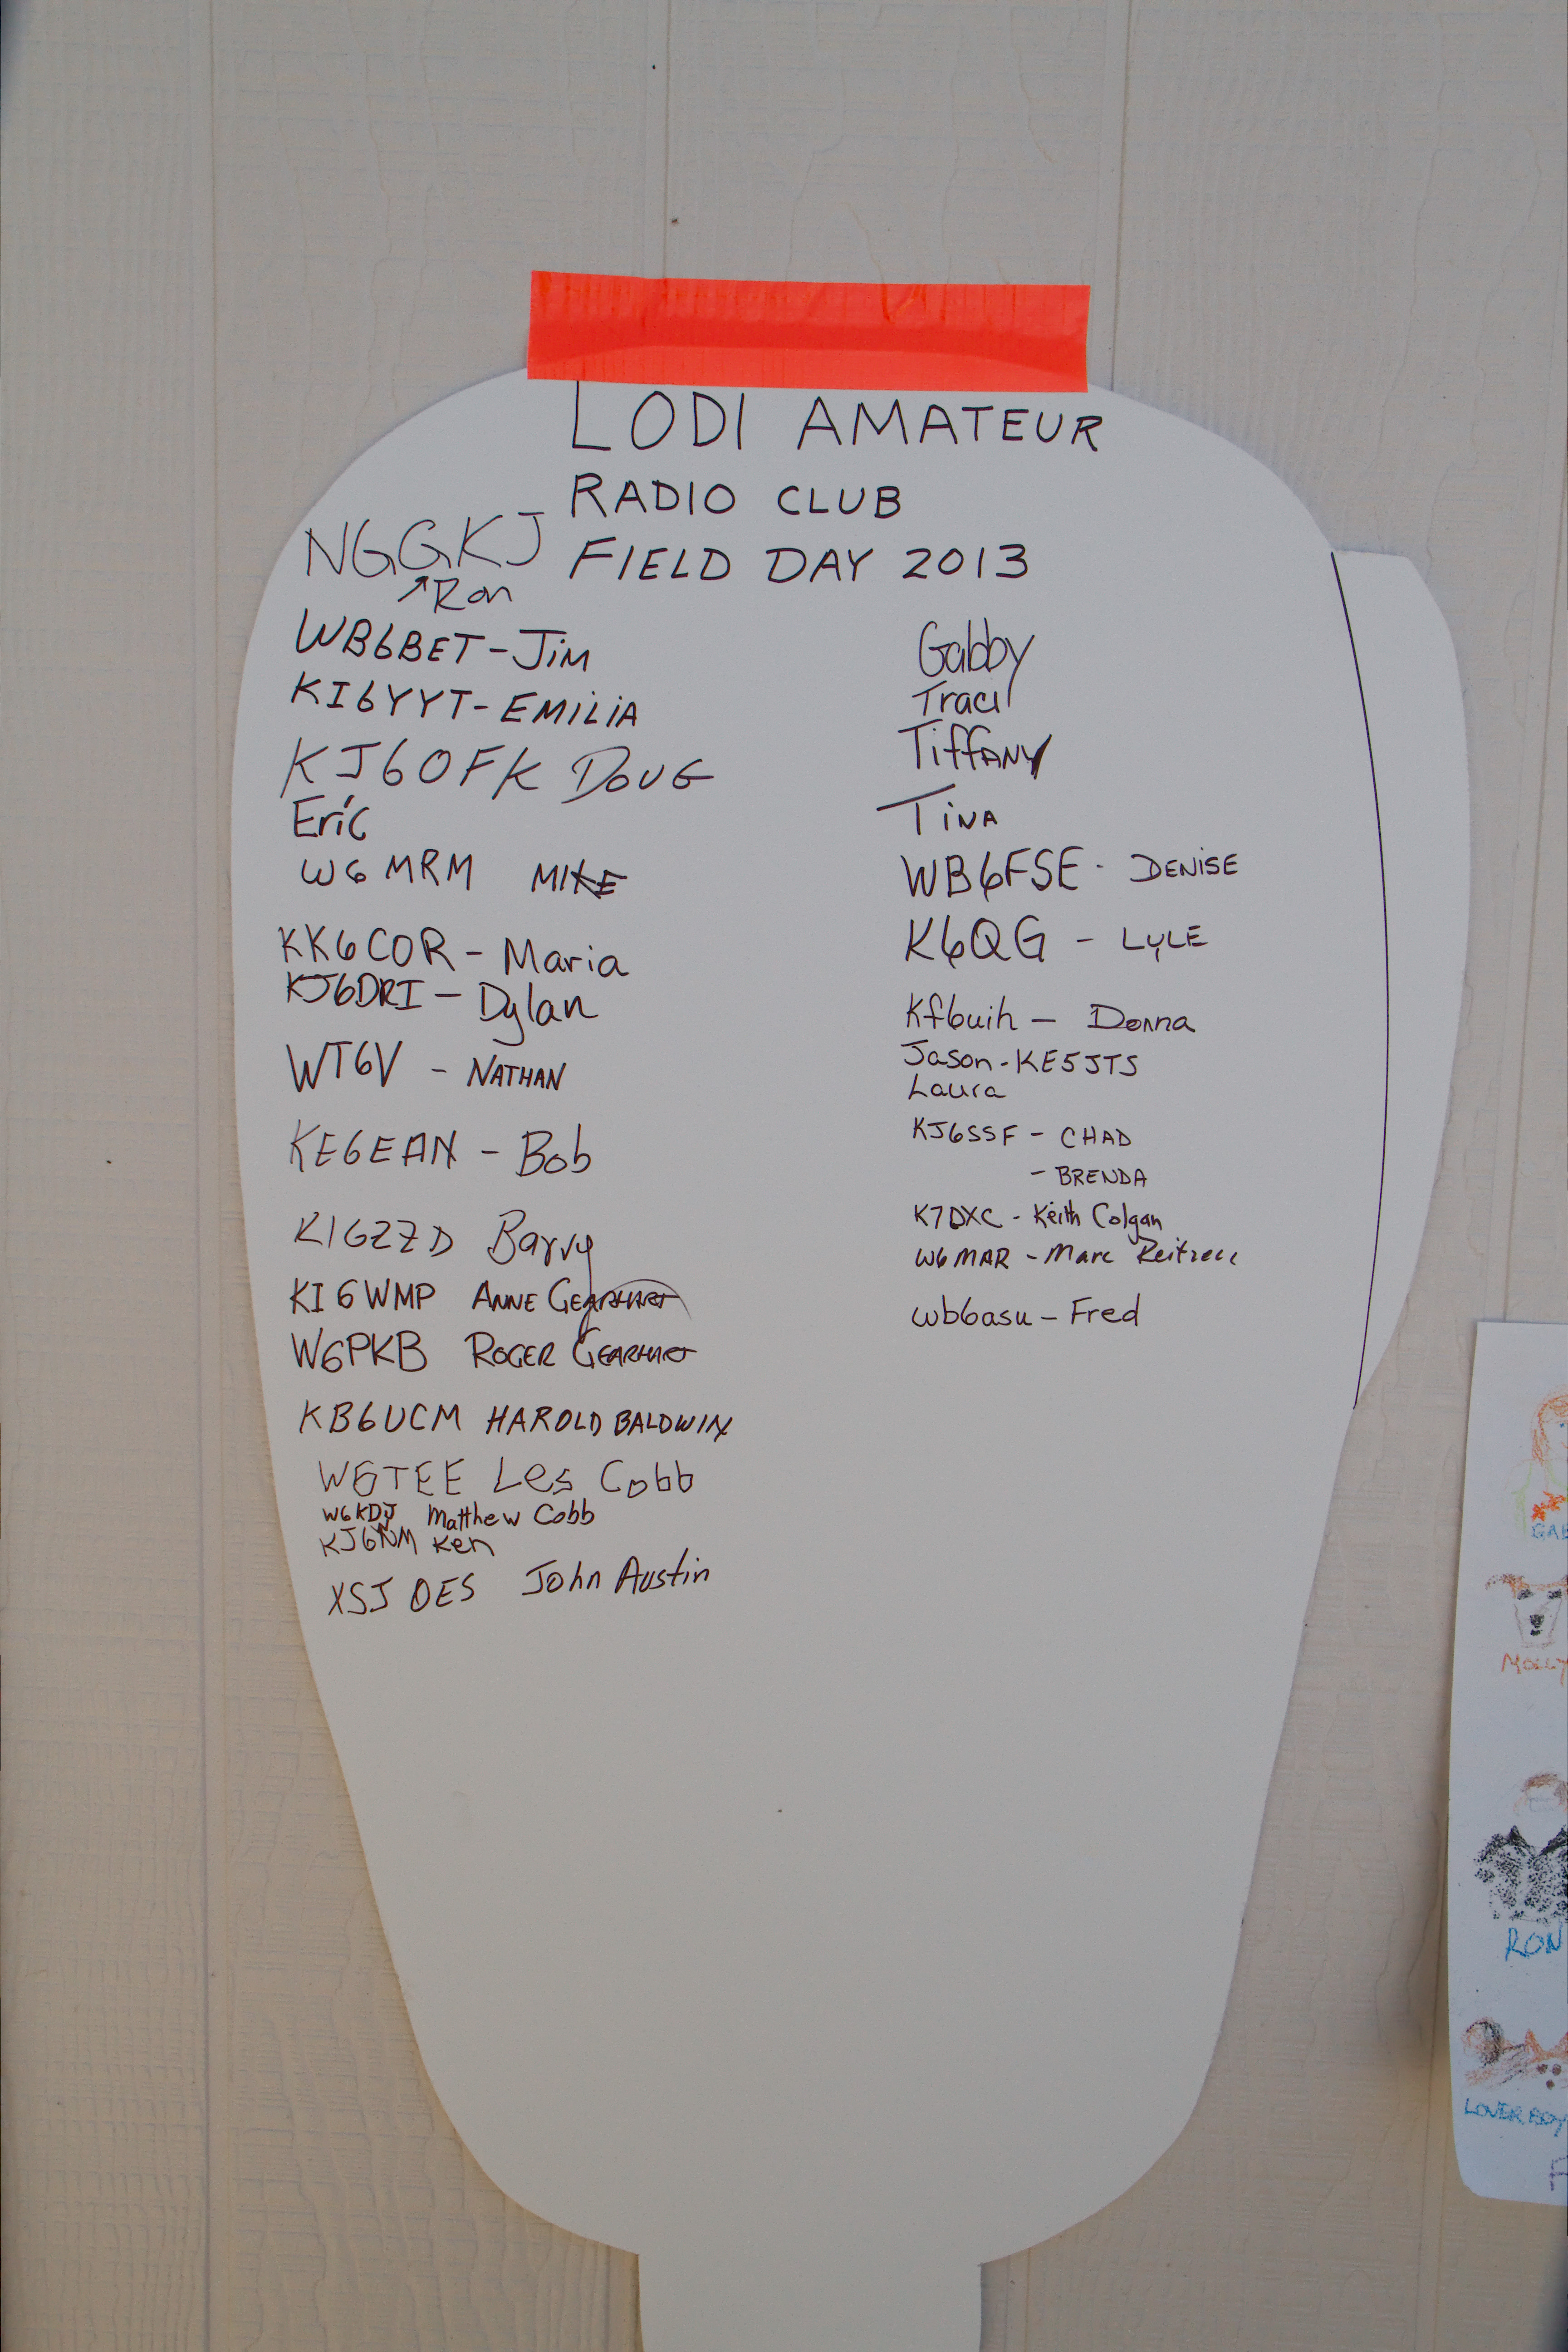 LODI AMATEUR
RADIO CLUB
FIELD DAY 2013
NG6KJ
Ron
WB6BET - Jim
KI6YYT - EMiLiA
KJ6OFK DOUG
Eric
W6MRM MIKE
KK6COR - Maria
KJ6DRI - Dylan
WT6V - NATHAN
KE6EAN - Bob
KI6ZZD Barry
KI6WMP ANNE GEARHART
W6PKB ROGER GEARHART
KB6UCM HAROLD BALDWIN
W6TEE Les Cobb
W6KDJ Matthew Cobb
Ken
XSJ OES John Austin
Gabby
Traci
TiffANY
TiNA
WB6FSE - DENiSE
K6QG - LYLE
Kf6uih - Donna
Jason - KE5JTS
Laura
KJ6SSF - CHAD
- BRENDA
K7DXC - Keith Colgan
W6MAR - Marc
wb6asu - Fred
MOLLY
RON
LOVER BOY